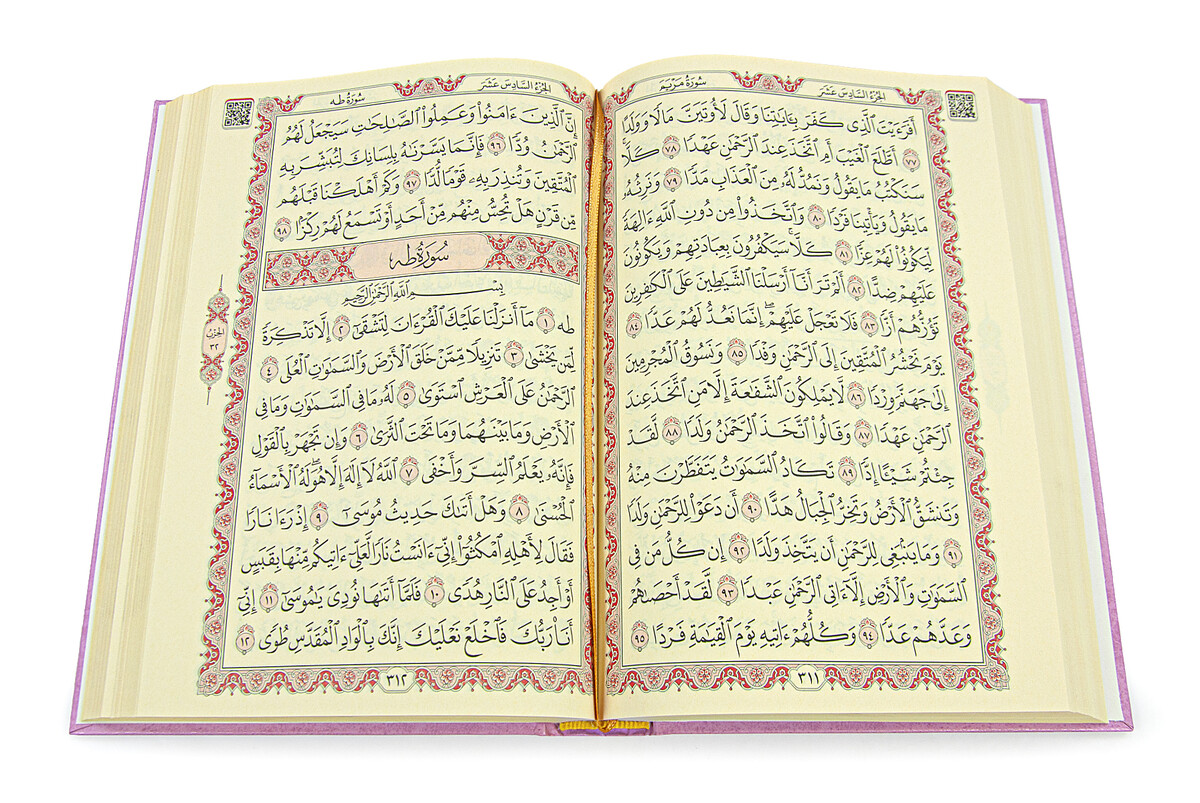 سُورَةُ مَرْيَم
الجُزْءُ السَّادِسَ عَشَرَ
أَفَرَءَيْتَ ٱلَّذِى كَفَرَ بِـَٔايَٰتِنَا وَقَالَ لَأُوتَيَنَّ مَالًا وَوَلَدًا
٧٧ أَطَّلَعَ ٱلْغَيْبَ أَمِ ٱتَّخَذَ عِندَ ٱلرَّحْمَٰنِ عَهْدًا ٧٨ كَلَّا
سَنَكْتُبُ مَا يَقُولُ وَنَمُدُّ لَهُۥ مِنَ ٱلْعَذَابِ مَدًّا ٧٩ وَنَرِثُهُۥ
مَا يَقُولُ وَيَأْتِينَا فَرْدًا ٨٠ وَٱتَّخَذُوا۟ مِن دُونِ ٱللَّهِ ءَالِهَةً
لِّيَكُونُوا۟ لَهُمْ عِزًّا ٨١ كَلَّا سَيَكْفُرُونَ بِعِبَادَتِهِمْ وَيَكُونُونَ
عَلَيْهِمْ ضِدًّا ٨٢ أَلَمْ تَرَ أَنَّآ أَرْسَلْنَا ٱلشَّيَٰطِينَ عَلَى ٱلْكَٰفِرِينَ
تَؤُزُّهُمْ أَزًّا ٨٣ فَلَا تَعْجَلْ عَلَيْهِمْ إِنَّمَا نَعُدُّ لَهُمْ عَدًّا ٨٤
يَوْمَ نَحْشُرُ ٱلْمُتَّقِينَ إِلَى ٱلرَّحْمَٰنِ وَفْدًا ٨٥ وَنَسُوقُ ٱلْمُجْرِمِينَ
إِلَىٰ جَهَنَّمَ وِرْدًا ٨٦ لَّا يَمْلِكُونَ ٱلشَّفَٰعَةَ إِلَّا مَنِ ٱتَّخَذَ عِندَ
ٱلرَّحْمَٰنِ عَهْدًا ٨٧ وَقَالُوا۟ ٱتَّخَذَ ٱلرَّحْمَٰنُ وَلَدًا ٨٨ لَّقَدْ
جِئْتُمْ شَيْـًٔا إِدًّا ٨٩ تَكَادُ ٱلسَّمَٰوَٰتُ يَتَفَطَّرْنَ مِنْهُ
وَتَنشَقُّ ٱلْأَرْضُ وَتَخِرُّ ٱلْجِبَالُ هَدًّا ٩٠ أَن دَعَوْا۟ لِلرَّحْمَٰنِ وَلَدًا
٩١ وَمَا يَنۢبَغِى لِلرَّحْمَٰنِ أَن يَتَّخِذَ وَلَدًا ٩٢ إِن كُلُّ مَن فِى
ٱلسَّمَٰوَٰتِ وَٱلْأَرْضِ إِلَّآ ءَاتِى ٱلرَّحْمَٰنِ عَبْدًا ٩٣ لَّقَدْ أَحْصَىٰهُمْ
وَعَدَّهُمْ عَدًّا ٩٤ وَكُلُّهُمْ ءَاتِيهِ يَوْمَ ٱلْقِيَٰمَةِ فَرْدًا ٩٥
٣١١
الجُزْءُ السَّادِسَ عَشَرَ
سُورَةُ طه
إِنَّ ٱلَّذِينَ ءَامَنُوا۟ وَعَمِلُوا۟ ٱلصَّٰلِحَٰتِ سَيَجْعَلُ لَهُمُ
ٱلرَّحْمَٰنُ وُدًّا ٩٦ فَإِنَّمَا يَسَّرْنَٰهُ بِلِسَانِكَ لِتُبَشِّرَ بِهِ
ٱلْمُتَّقِينَ وَتُنذِرَ بِهِۦ قَوْمًا لُّدًّا ٩٧ وَكَمْ أَهْلَكْنَا قَبْلَهُم
مِّن قَرْنٍ هَلْ تُحِسُّ مِنْهُم مِّنْ أَحَدٍ أَوْ تَسْمَعُ لَهُمْ رِكْزًۢا ٩٨
سُورَةُ طه
بِسْمِ ٱللَّهِ ٱلرَّحْمَٰنِ ٱلرَّحِيمِ
طه ١ مَآ أَنزَلْنَا عَلَيْكَ ٱلْقُرْءَانَ لِتَشْقَىٰٓ ٢ إِلَّا تَذْكِرَةً
لِّمَن يَخْشَىٰ ٣ تَنزِيلًا مِّمَّنْ خَلَقَ ٱلْأَرْضَ وَٱلسَّمَٰوَٰتِ ٱلْعُلَى ٤
ٱلرَّحْمَٰنُ عَلَى ٱلْعَرْشِ ٱسْتَوَىٰ ٥ لَهُۥ مَا فِى ٱلسَّمَٰوَٰتِ وَمَا فِى
ٱلْأَرْضِ وَمَا بَيْنَهُمَا وَمَا تَحْتَ ٱلثَّرَىٰ ٦ وَإِن تَجْهَرْ بِٱلْقَوْلِ
فَإِنَّهُۥ يَعْلَمُ ٱلسِّرَّ وَأَخْفَى ٧ ٱللَّهُ لَآ إِلَٰهَ إِلَّا هُوَ لَهُ ٱلْأَسْمَآءُ
ٱلْحُسْنَىٰ ٨ وَهَلْ أَتَىٰكَ حَدِيثُ مُوسَىٰٓ ٩ إِذْ رَءَا نَارًا
فَقَالَ لِأَهْلِهِ ٱمْكُثُوٓا۟ إِنِّىٓ ءَانَسْتُ نَارًا لَّعَلِّىٓ ءَاتِيكُم مِّنْهَا بِقَبَسٍ
أَوْ أَجِدُ عَلَى ٱلنَّارِ هُدًى ١٠ فَلَمَّآ أَتَىٰهَا نُودِىَ يَٰمُوسَىٰٓ ١١ إِنِّىٓ
أَنَا۠ رَبُّكَ فَٱخْلَعْ نَعْلَيْكَ إِنَّكَ بِٱلْوَادِ ٱلْمُقَدَّسِ طُوًى ١٢
الحزب
٣٢
٣١٢